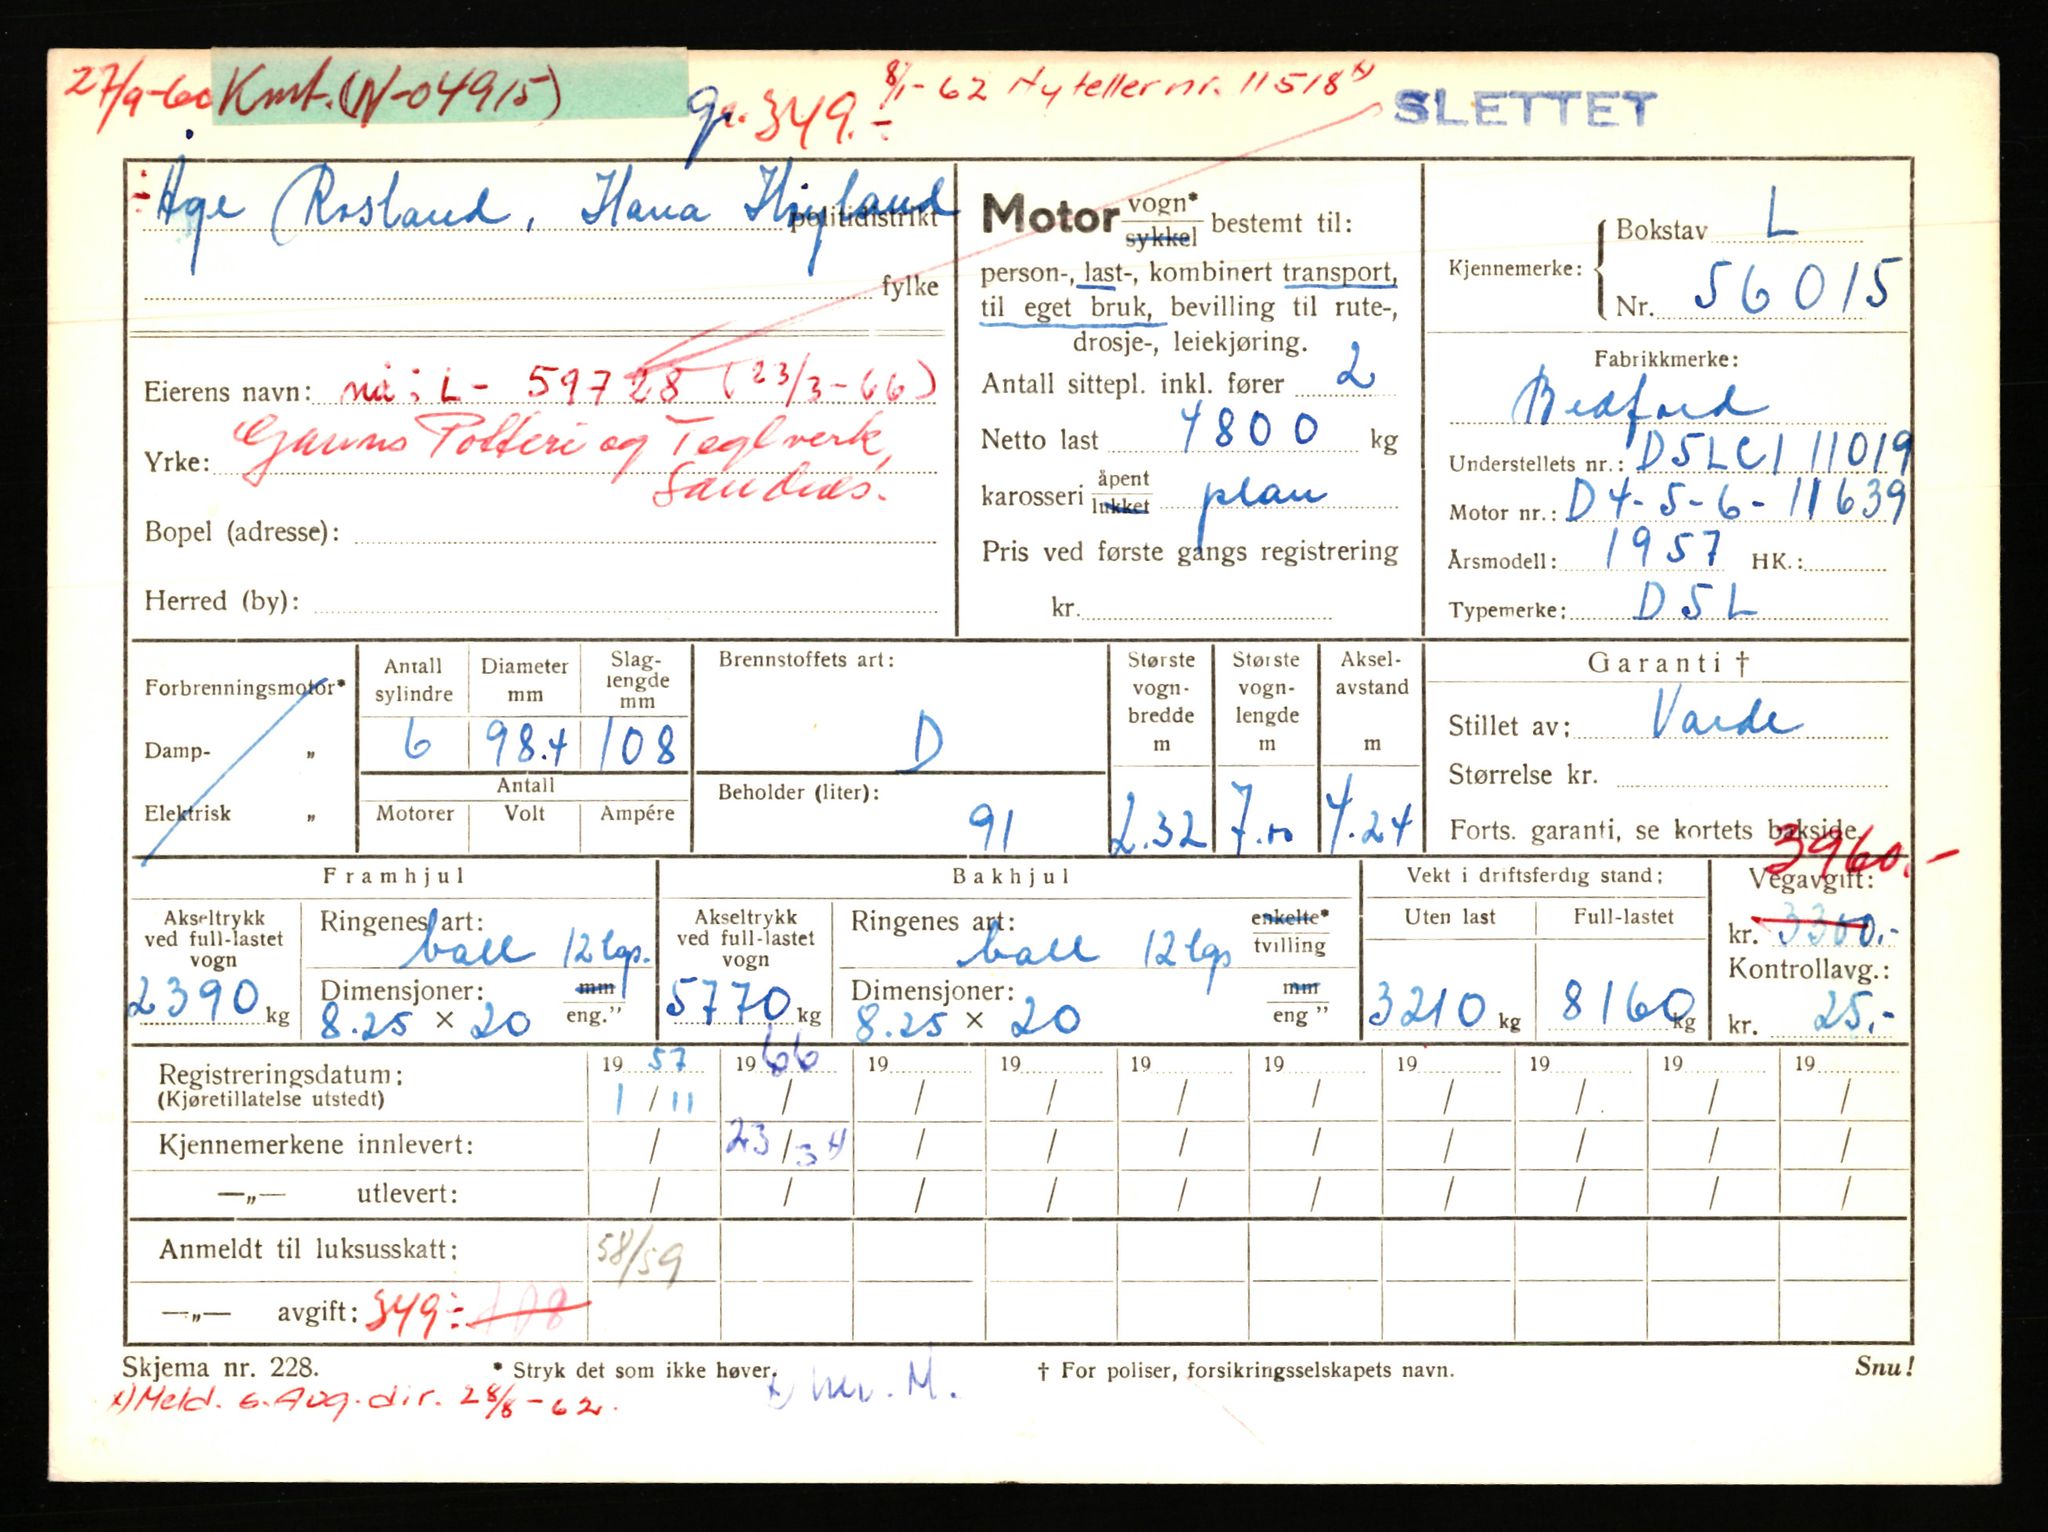 27/9-60 Kmt. (N-04915) gr. 349.- 8/1-62 Ny teller nr. 11518 x)
SLETTET
Åge Rosland, Hana Høyland politidistrikt
fylke
Eierens navn: nå: L- 59728 (23/3-66)
Yrke: Ganns Potteri og Teglverk,
Sandnes.
Bopel (adresse):
Herred (by):
Motor vogn* sykkel bestemt til:
person-, last-, kombinert transport,
til eget bruk, bevilling til rute-,
drosje-, leiekjøring.
Antall sittepl. inkl. fører 2
Netto last 4800 kg
karosseri åpent lukket plan
Pris ved første gangs registrering
kr.
Kjennemerke: Bokstav L
Nr. 56015
Fabrikkmerke:
Bedford
Understellets nr.: D5LC1 11019
Motor nr.: D4-5-6-11639
Årsmodell: 1957 HK.:
Typemerke: D5L
Forbrenningsmotor*
Damp- „
Elektrisk „
Antall sylindre 6
Diameter mm 98.4
Slag-lengde mm 108
Antall
Motorer Volt Ampére
Brennstoffets art:
D
Beholder (liter):
91
Største vogn-bredde m 2.32
Største vogn-lengde m 7.00
Aksel-avstand m 4.24
Garanti †
Stillet av: Varde
Størrelse kr.
Forts. garanti, se kortets bakside.
Framhjul
Akseltrykk ved full-lastet vogn
2390 kg
Ringenes art:
ball 12 lgs.
Dimensjoner: mm eng."
8.25 × 20
Bakhjul
Akseltrykk ved full-lastet vogn
5770 kg
Ringenes art: enkelte* tvilling
ball 12 lgs
Dimensjoner: mm eng "
8.25 × 20
Vekt i driftsferdig stand:
Uten last Full-lastet
3210 kg 8160 kg
3960.-
Vegavgift:
kr. 3300.-
Kontrollavg.:
kr. 25.-
Registreringsdatum: 19 57 19 66 19 19 19 19 19 19 19 19
(Kjøretillatelse utstedt) 1 / 11 / / / / / / / / /
Kjennemerkene innlevert: / 23 / 3 x) / / / / / / / /
—„— utlevert: / / / / / / / / / /
Anmeldt til luksusskatt: 58/59
—„— avgift: 349:-
Skjema nr. 228. * Stryk det som ikke høver. † For poliser, forsikringsselskapets navn. Snu!
x) Meld. s. Avg.dir. 28/8-62.